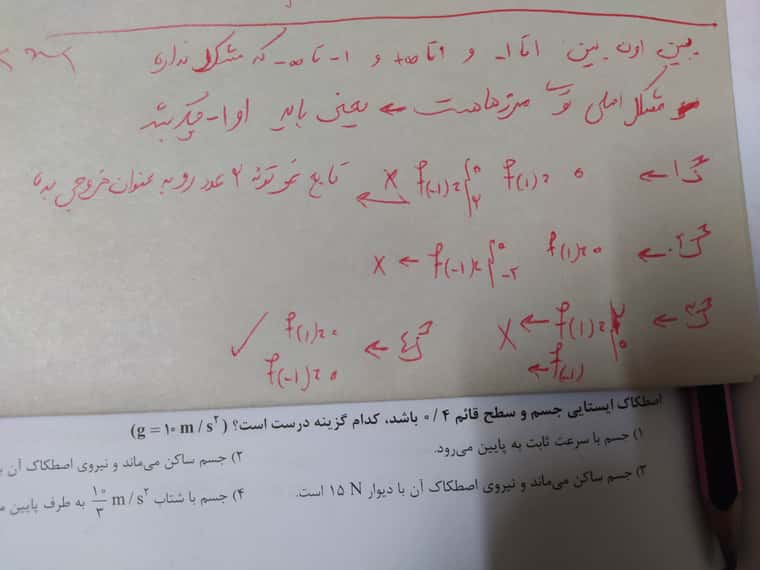 بین اون بین ۱ تا ۱- و ۱ تا ∞+ و ۱- تا ∞- که مشکل نداره
مشکل اصلی تو مرزهاست ← یعنی باید ۱ و ۱- چک بشه
گ۱ ← f(۱) = ۰ f(-۱) = ۰ ۲ X ← تابع نمیتونه ۲ عدد رو به عنوان خروجی بده
گ۲ ← f(۱) = ۰ f(-۱) = ۰ -۲ ← X
گ۳ ← f(۱) = ۲ ۰ ← X
f(-۱) ←
گ۴ ← f(۱) = ۰ ✓
f(-۱) = ۰
اصطکاک ایستایی جسم و سطح قائم ۰/۴ باشد، کدام گزینه درست است؟ (g = ۱۰ m/s²)
۱) جسم با سرعت ثابت به پایین می‌رود.
۲) جسم ساکن می‌ماند و نیروی اصطکاک آن با
۳) جسم ساکن می‌ماند و نیروی اصطکاک آن با دیوار ۱۵ N است.
۴) جسم با شتاب ۱۰/۳ m/s² به طرف پایین